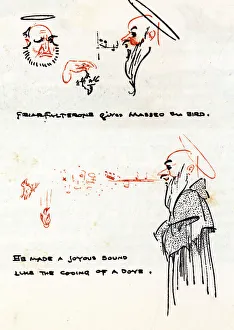 GIVES MASSEO THE BIRD.
HE MADE A JOYOUS SOUND
LIKE THE COOING OF A DOVE.